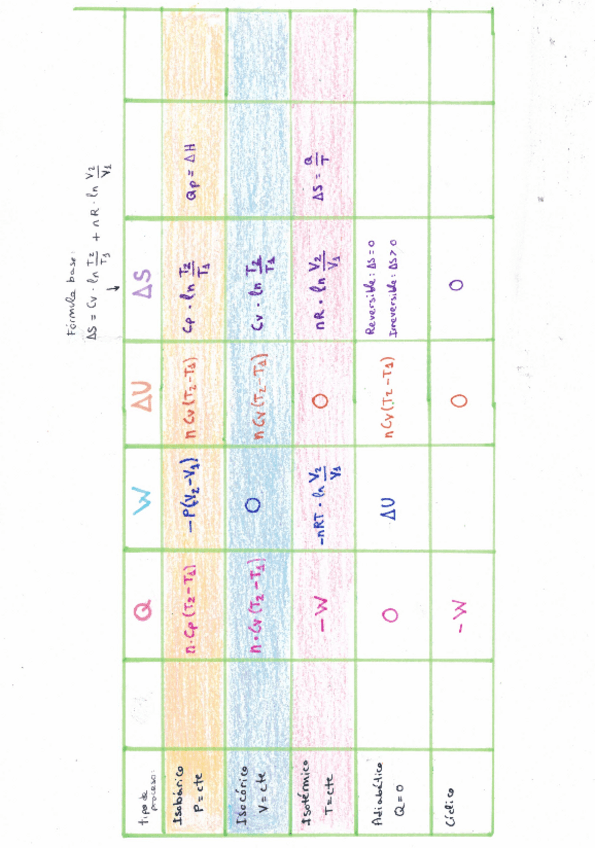 Fórmula base:
ΔS = Cv · ln T2/T1 + nR · ln V2/V1
tipo de proceso: Q W ΔU ΔS
Isobárico P=cte n·Cp (T2-T1) -P(V2-V1) n Cv (T2-T1) Cp · ln T2/T1 Qp = ΔH
Isocórico V=cte n·Cv (T2-T1) 0 n Cv (T2-T1) Cv · ln T2/T1
Isotérmico T=cte -W -nRT · ln V2/V1 0 nR · ln V2/V1 ΔS = Q/T
Adiabático Q=0 0 ΔU n Cv (T2-T1) Reversible: ΔS=0 Irreversible: ΔS>0
Cíclico -W 0 0